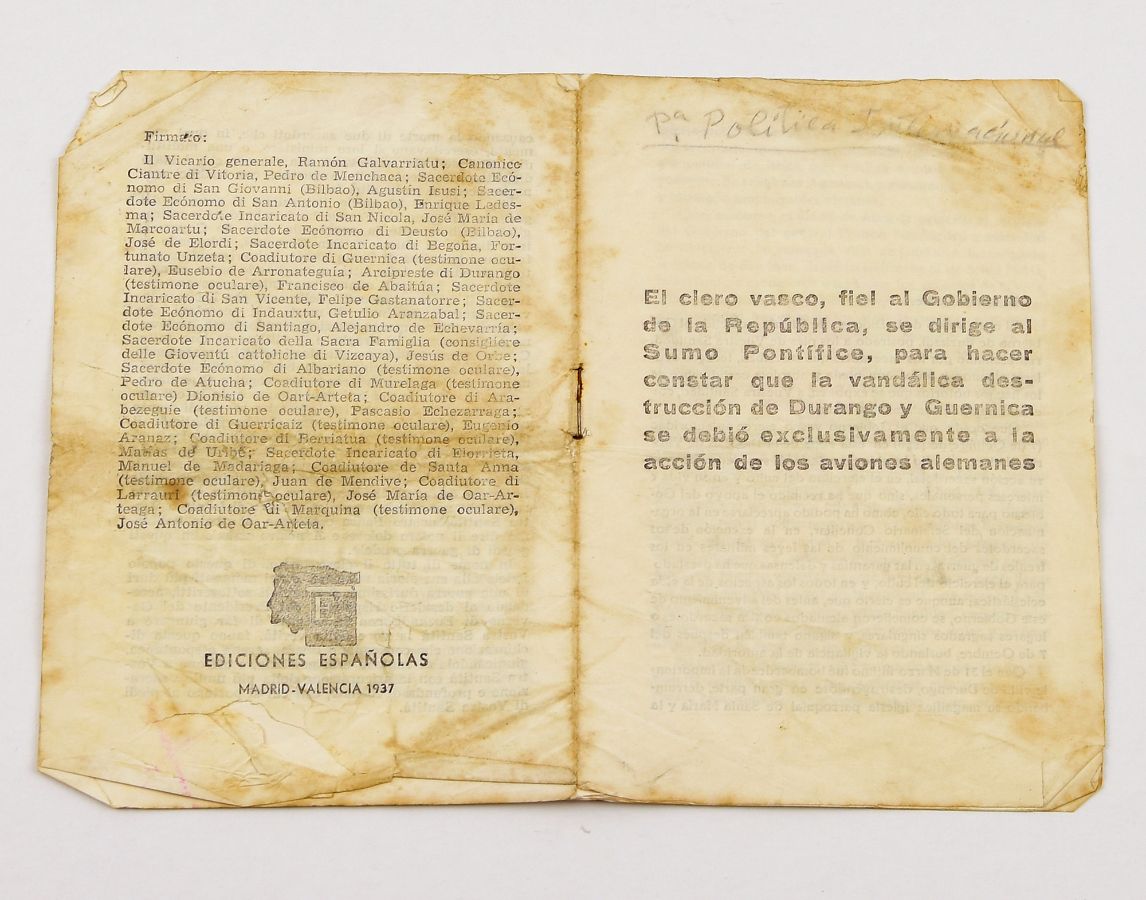 Firmato:
Il Vicario generale, Ramón Galvarriatu; Canonico
Ciantre di Vitoria, Pedro de Menchaca; Sacerdote Ecó-
nomo di San Giovanni (Bilbao), Agustín Isusi; Sacer-
dote Ecónomo di San Antonio (Bilbao), Enrique Ledes-
ma; Sacerdote Incaricato di San Nicola, José María de
Marcoartu; Sacerdote Ecónomo di Deusto (Bilbao),
José de Elordi; Sacerdote Incaricato di Begoña, For-
tunato Unzeta; Coadiutore di Guernica (testimone ocu-
lare), Eusebio de Arronateguía; Arcipreste di Durango
(testimone oculare), Francisco de Abaitúa; Sacerdote
Incaricato di San Vicente, Felipe Gastanatorre; Sacer-
dote Ecónomo di Indauxtu, Getulio Aranzabal; Sacer-
dote Ecónomo di Santiago, Alejandro de Echevarría;
Sacerdote Incaricato della Sacra Famiglia (consigliere
delle Gioventú cattoliche di Vizcaya), Jesús de Orbe;
Sacerdote Ecónomo di Albariano (testimone oculare),
Pedro de Atucha; Coadiutore di Murelaga (testimone
oculare) Dionisio de Oart-Arteta; Coadiutore di Ara-
bezeguie (testimone oculare), Pascasio Echezarraga;
Coadiutore di Guerricaiz (testimone oculare), Eugenio
Aranaz; Coadiutore di Berriatua (testimone oculare),
Matías de Uribe; Sacerdote Incaricato di Elorrieta,
Manuel de Madariaga; Coadiutore de Santa Anna
(testimone oculare), Juan de Mendive; Coadiutore di
Larrauri (testimone oculare), José María de Oar-Ar-
teaga; Coadiutore di Marquina (testimone oculare),
José Antonio de Oar-Arteta.
EDICIONES ESPAÑOLAS
MADRID-VALENCIA 1937
pª Política Internacional
El clero vasco, fiel al Gobierno
de la República, se dirige al
Sumo Pontífice, para hacer
constar que la vandálica des-
trucción de Durango y Guernica
se debió exclusivamente a la
acción de los aviones alemanes